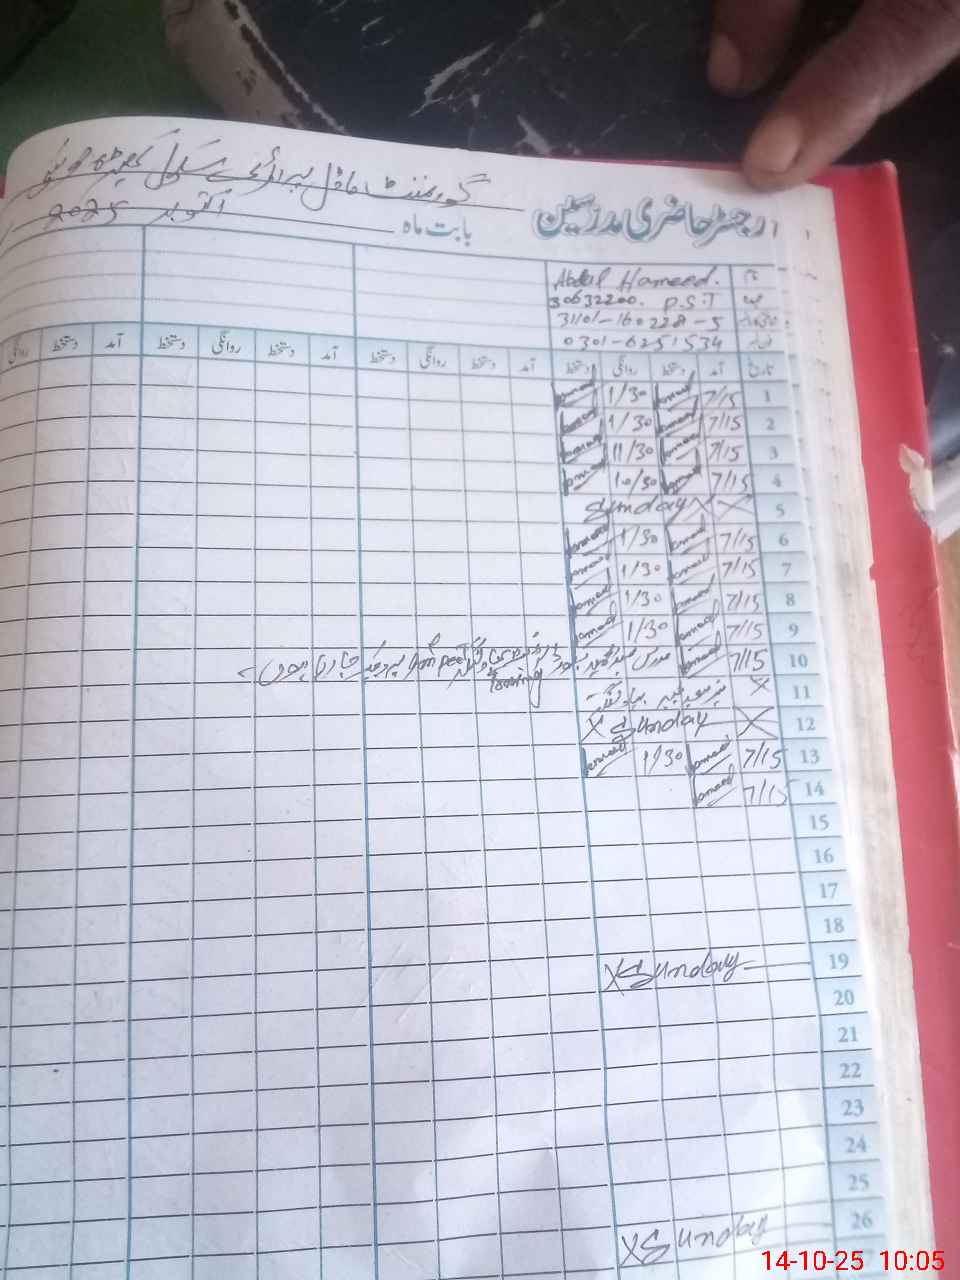 گورنمنٹ ماڈل پرائمری سکول
رجسٹر حاضری مدرسین
بابت ماہ اکتوبر 2025
نام Abdul Hameed.
30632200. P.S.T
31101-160228-5
0301-6251534
تاریخ آمد دستخط روانگی دستخط آمد دستخط روانگی دستخط آمد دستخط روانگی دستخط آمد روانگی
1 7/15 Hameed 1/30 Hameed
2 7/15 Hameed 1/30 Hameed
3 7/15 Hameed 11/30 Hameed
4 7/15 Hameed 10/30 Hameed
5 Sunday X X
6 7/15 Hameed 1/30 Hameed
7 7/15 Hameed 1/30 Hameed
8 7/15 Hameed 1/30 Hameed
9 7/15 Hameed 1/30 Hameed
10 7/15 Hameed مدرس جا رہا ہوں۔
11 X
12 X Sunday X
13 7/15 Hameed 1/30 Hameed
14 7/15 Hameed
15
16
17
18
19 X Sunday
20
21
22
23
24
25
26 X Sunday
14-10-25 10:05